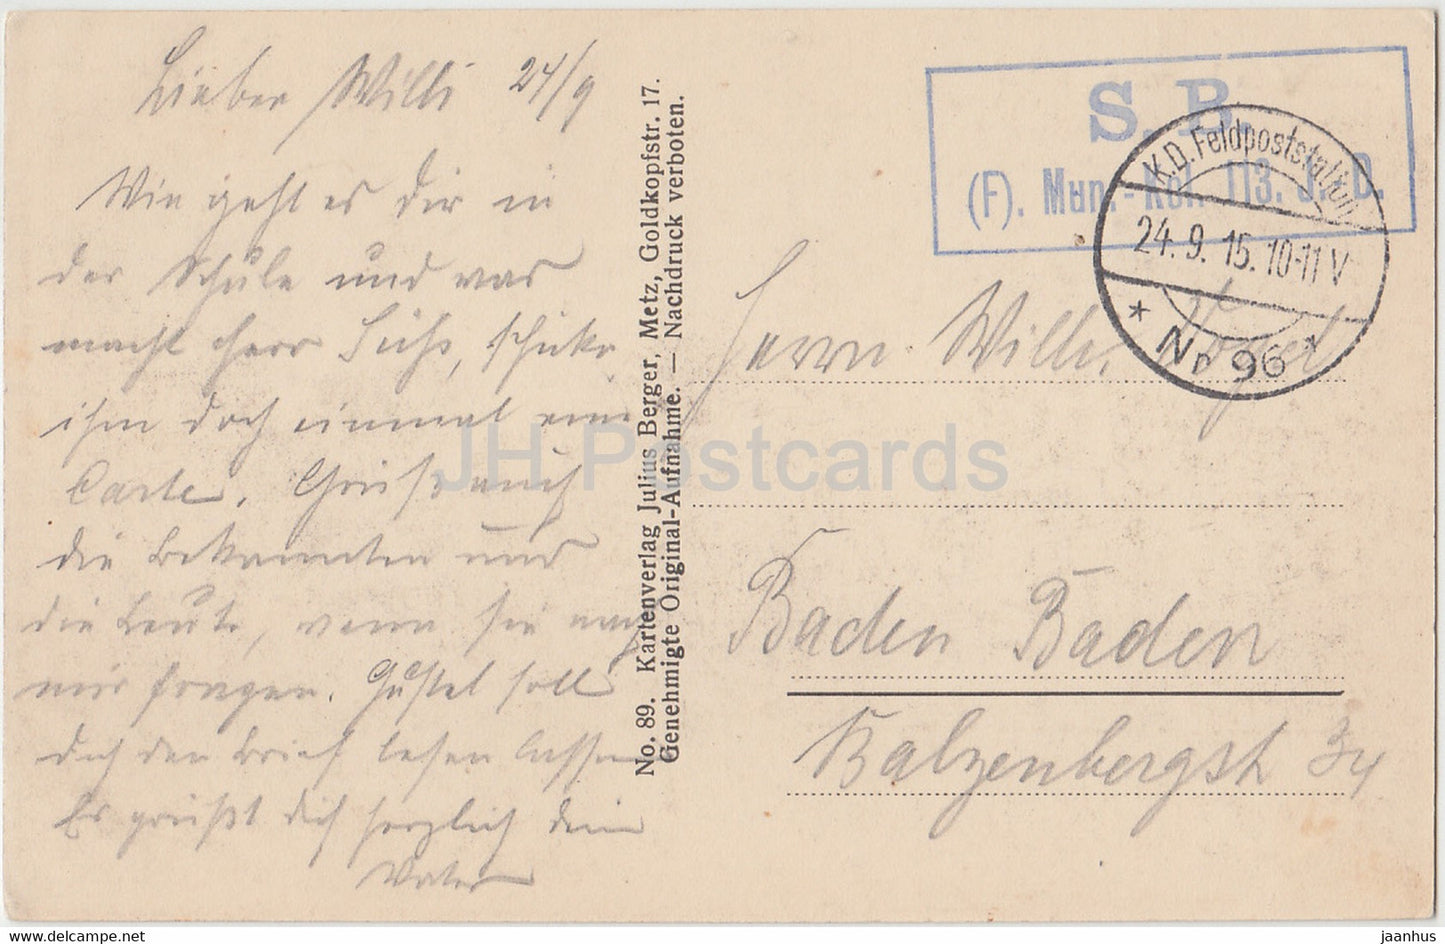 Lieber Willi 24/9
Wie geht es dir in
der Schule und was
macht Herr Fuchs, schicke
ihm doch einmal eine
Carte. Grüß auch
die Bekannten und
die Leute, wenn sie nach
mir fragen. Gustel soll
dich den Brief lesen lassen
Es grüßt dich herzlich dein
Vater
No. 89. Kartenverlag Julius Berger, Metz, Goldkopfstr. 17.
Genehmigte Original-Aufnahme. — Nachdruck verboten.
S. B.
(F). Mun.-Kol. 113. J. D.
K.D. Feldpoststation
24. 9. 15. 10-11 V
* Nr 96 *
Herrn Willi
Baden Baden
Balzenbergstr 34
JH Postcards
hippostcard.com
jaanhus